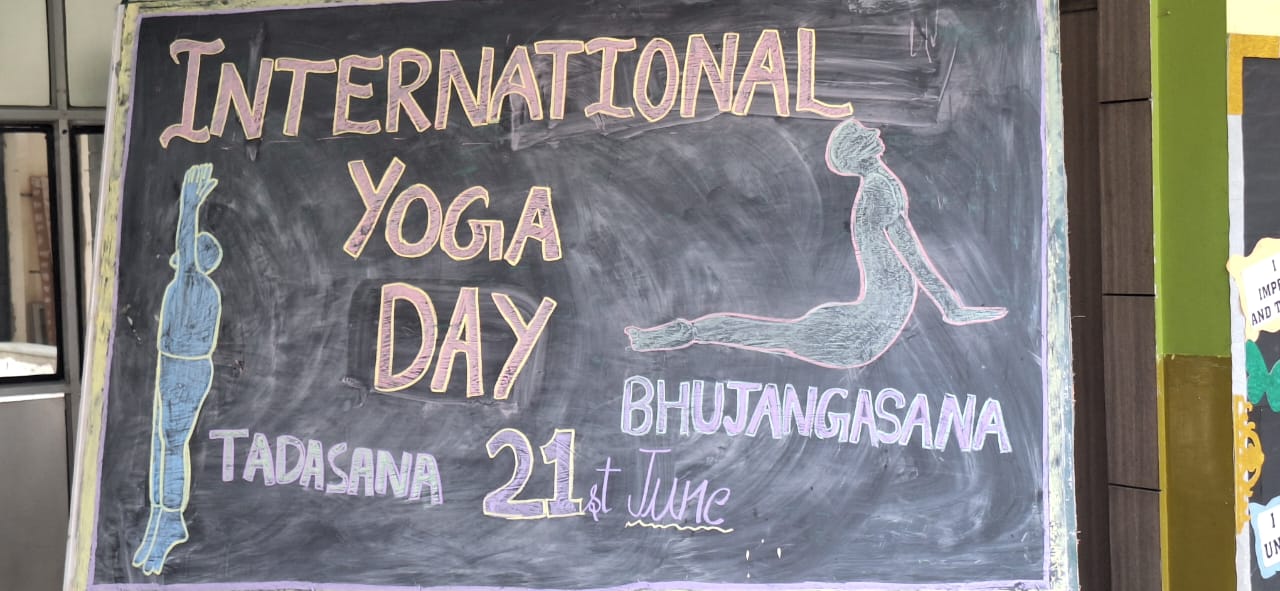 INTERNATIONAL
YOGA
DAY
BHUJANGASANA
TADASANA
21st June
I
IMP
AND T
I
UN